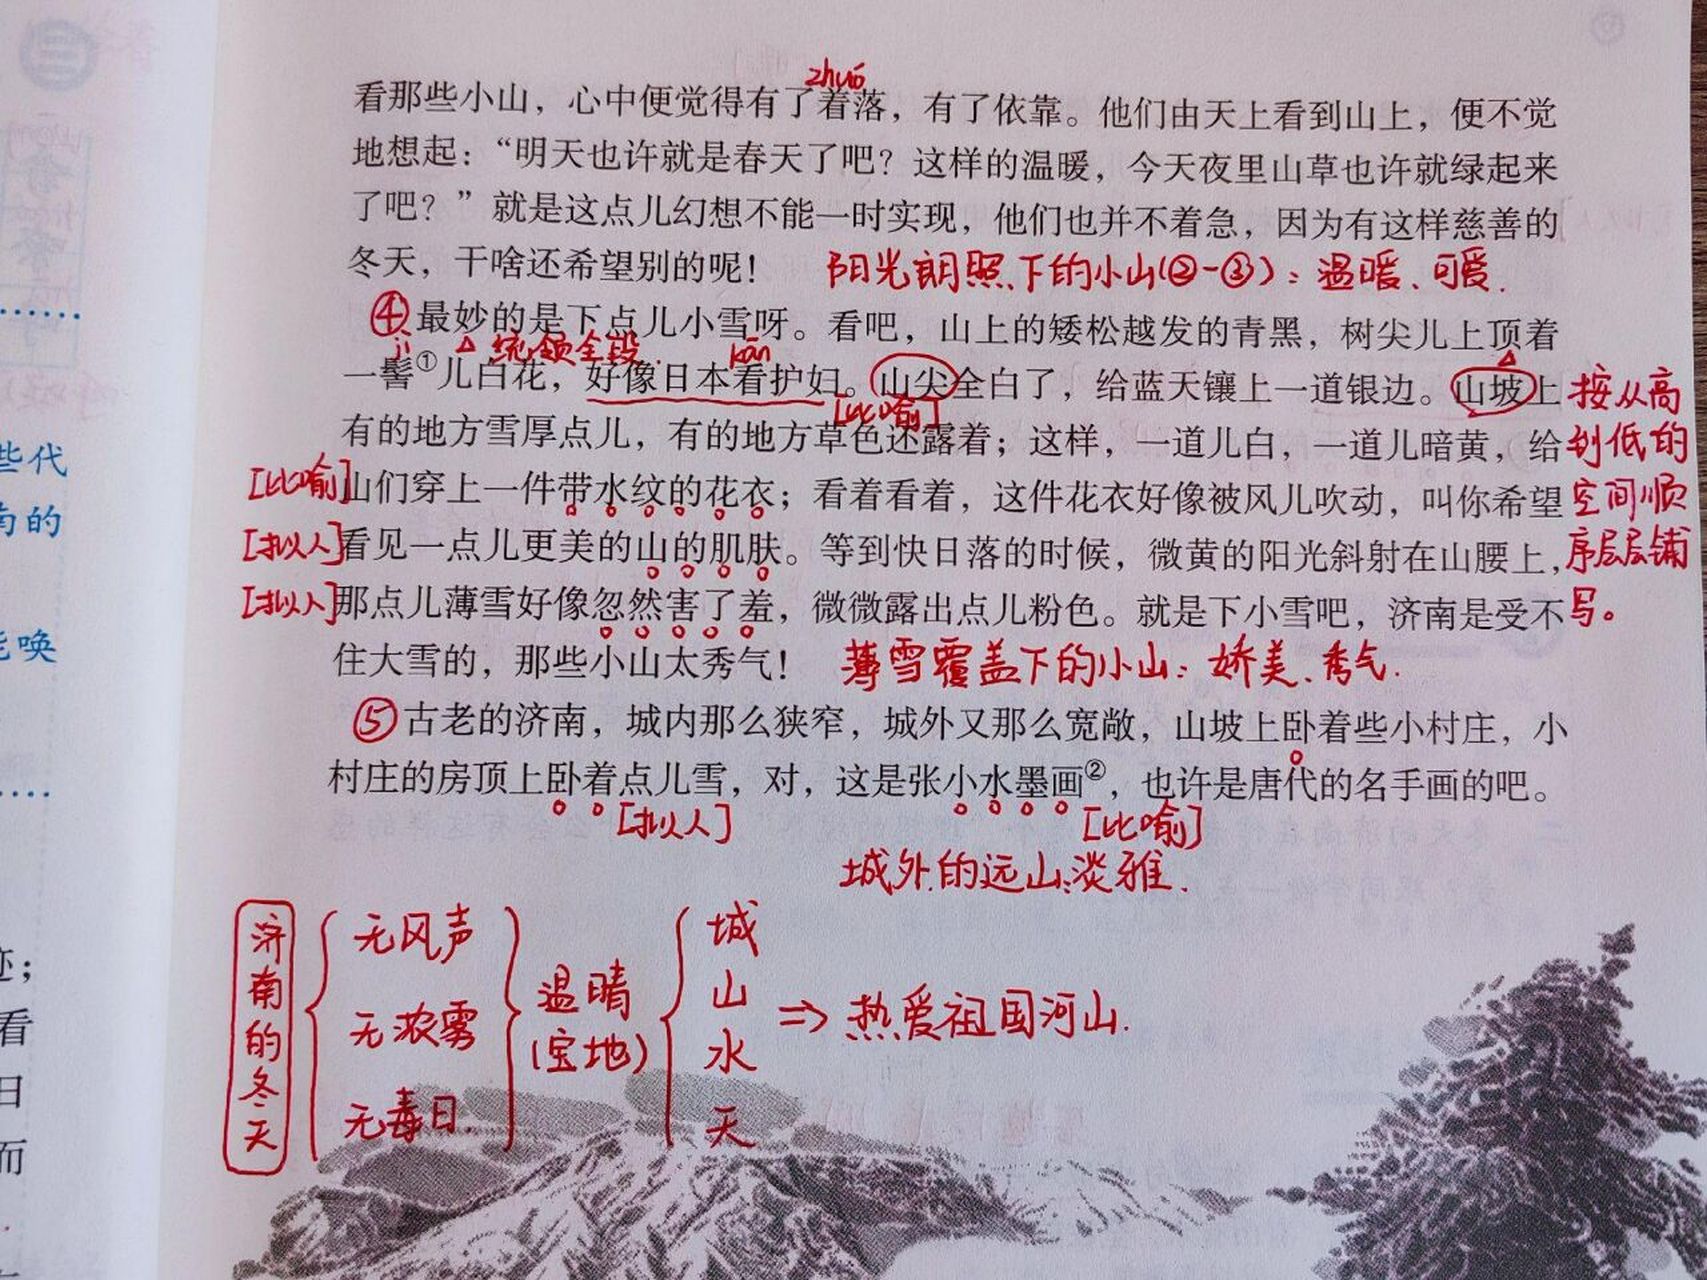 zhuó
看那些小山，心中便觉得有了着落，有了依靠。他们由天上看到山上，便不觉
地想起：“明天也许就是春天了吧？这样的温暖，今天夜里山草也许就绿起来
了吧？”就是这点儿幻想不能一时实现，他们也并不着急，因为有这样慈善的
冬天，干啥还希望别的呢！ 阳光朗照下的小山(②-③)：温暖、可爱.
④最妙的是下点儿小雪呀。看吧，山上的矮松越发的青黑，树尖儿上顶着
jì 统领全段. kān
一髻①儿白花，好像日本看护妇。山尖全白了，给蓝天镶上一道银边。山坡上
[比喻]
有的地方雪厚点儿，有的地方草色还露着；这样，一道儿白，一道儿暗黄，给
[比喻]山们穿上一件带水纹的花衣；看着看着，这件花衣好像被风儿吹动，叫你希望
[拟人]看见一点儿更美的山的肌肤。等到快日落的时候，微黄的阳光斜射在山腰上，
[拟人]那点儿薄雪好像忽然害了羞，微微露出点儿粉色。就是下小雪吧，济南是受不
住大雪的，那些小山太秀气！ 薄雪覆盖下的小山：娇美、秀气.
按从高
到低的
空间顺
序层层铺
写。
⑤古老的济南，城内那么狭窄，城外又那么宽敞，山坡上卧着些小村庄，小
村庄的房顶上卧着点儿雪，对，这是张小水墨画②，也许是唐代的名手画的吧。
[拟人] [比喻]
城外的远山：淡雅.
济南的冬天
无风声
无浓雾
无毒日.
温晴
(宝地)
城
山
水
天
⇒热爱祖国河山.
些代
南的
能唤
迹；
看
日
而